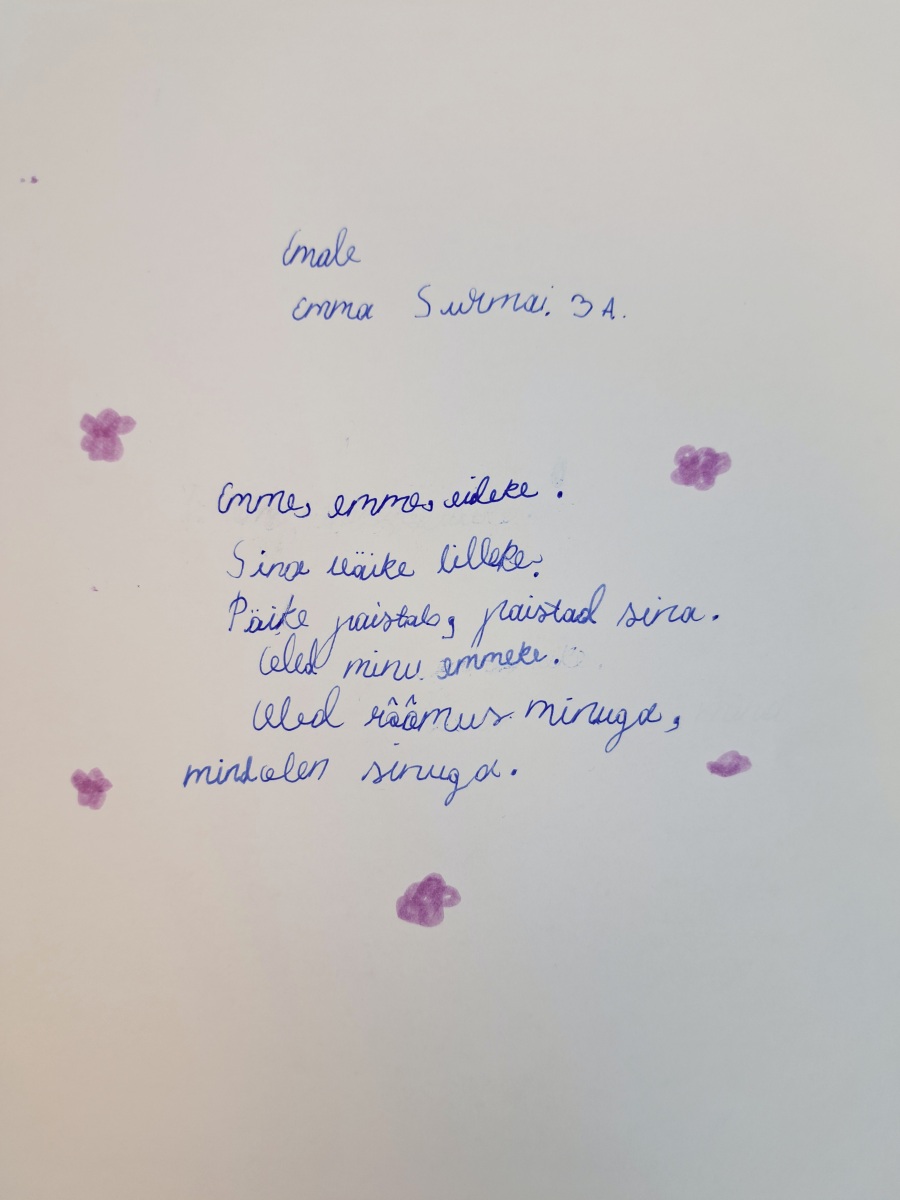 Emale
Emma Surmai. 3 A.
Emme, emme, eideke.
Sina väike lilleke.
Päike paistab, paistad sina.
Oled minu emmeke.
Oled rõõmus minuga,
mind olen sinuga.